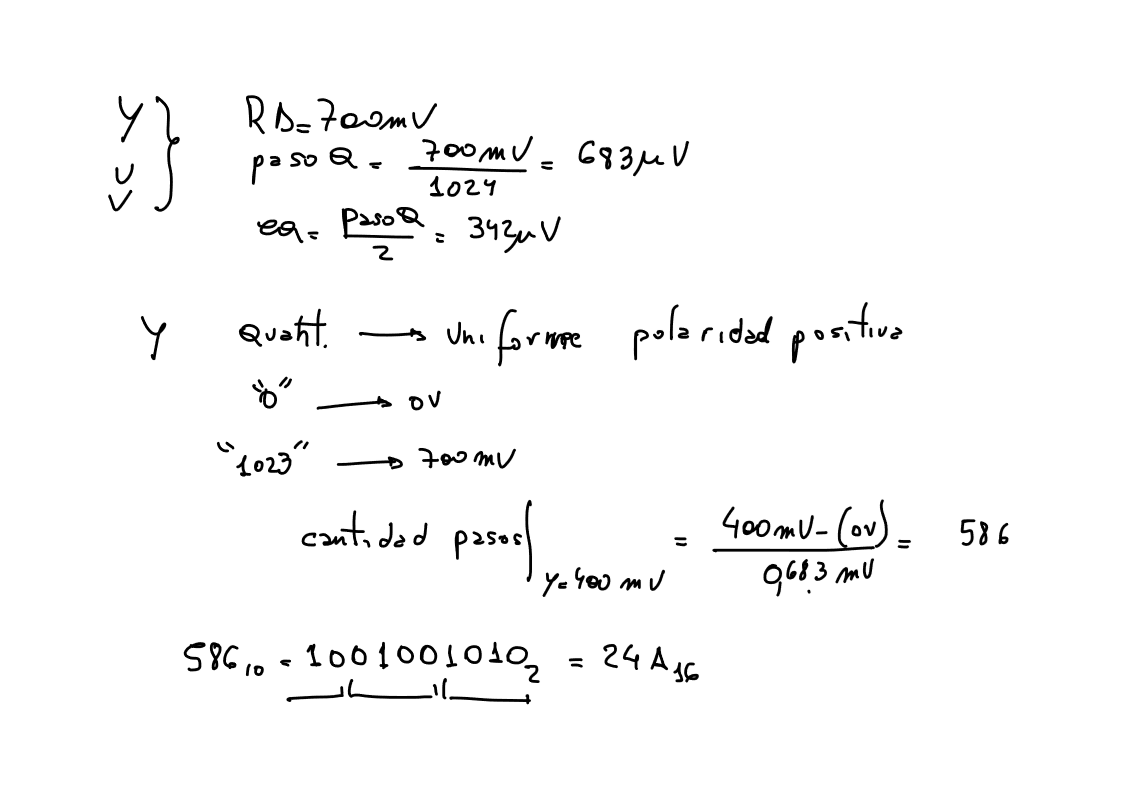 Y } RD = 700mV
U paso Q = 700mV / 1024 = 683μV
V eq = paso Q / 2 = 342μV
Y Quant. → Uniforme polaridad positiva
"0" → 0V
"1023" → 700mV
cantidad pasos | Y=400mV = 400mV-(0V) / 0,683 mV = 586
586₁₀ = 1001001010₂ = 24A₁₆